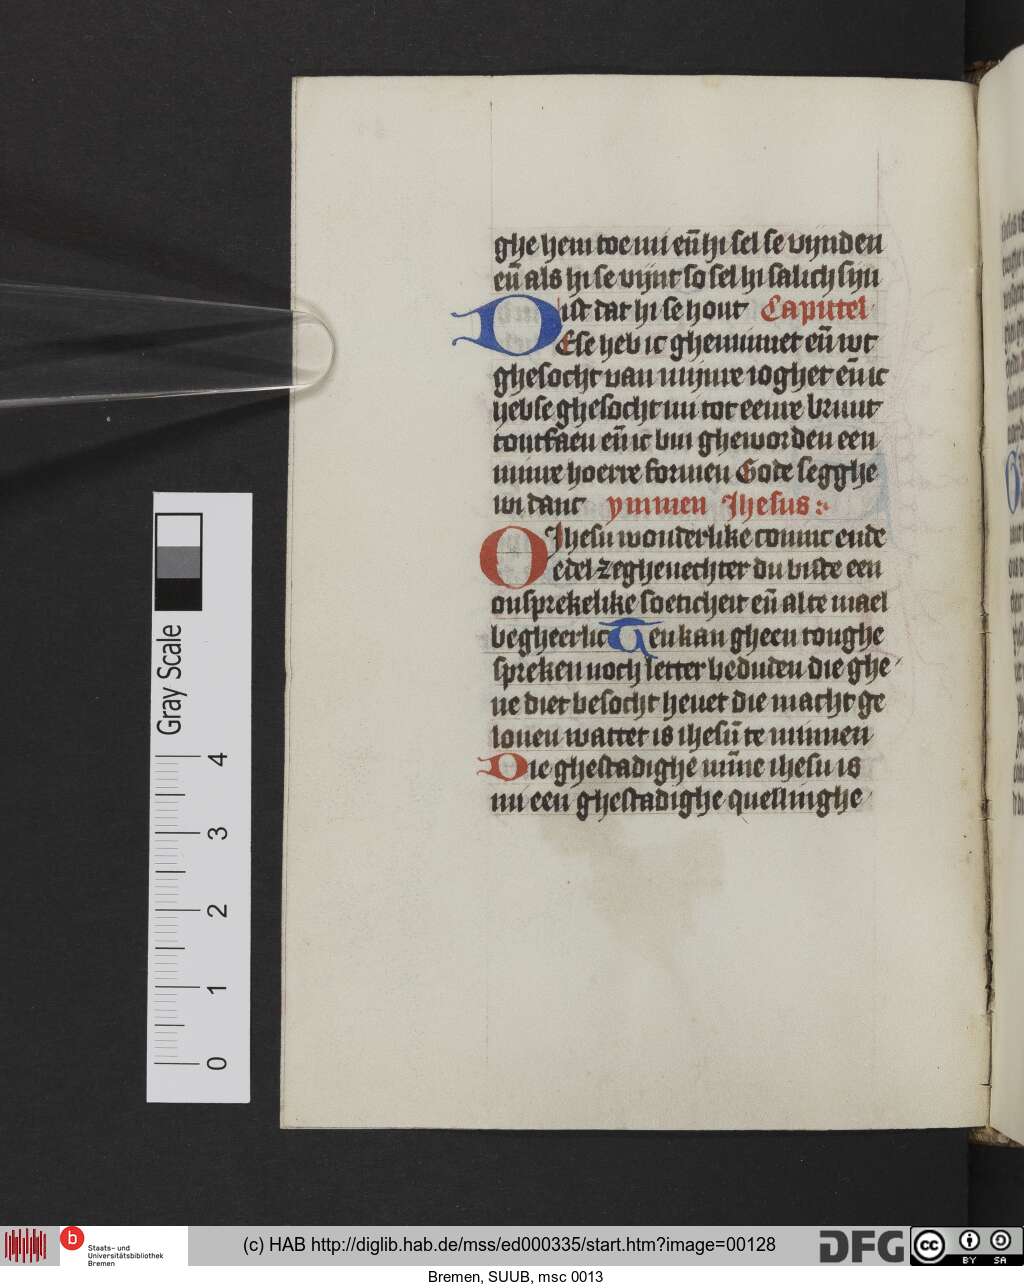 ghe hem toe nu en̄ hi sel se vynden
en̄ als hi se vynt so sel hi salich syn
ist dat hi se hout Caputel
DEse heb ic gheminnet en̄ wt
ghesocht van mijnre ioghet en̄ ic
hebse ghesocht nu tot eenre bruut
tontfaen en̄ ic bin gheworden een
minre hoerre formen Gode segghe
wi danc ymmen Jhesus:
O Jhesu wonderlike coninc ende
edel zeghevechter du biste een
onsprekelike soeticheit en̄ alte mael
begheerlic Ten kan gheen tonghe
spreken noch letter beduden die ghe
ne diet besocht hevet die macht ge
loven wattet is ihesū te minnen
Die ghestadighe mīne ihesu is
mi een ghestadighe quellinghe
Gray Scale
4
3
2
1
0
b Staats- und
Universitätsbibliothek
Bremen
(c) HAB http://diglib.hab.de/mss/ed000335/start.htm?image=00128
DFG
cc BY SA
Bremen, SUUB, msc 0013